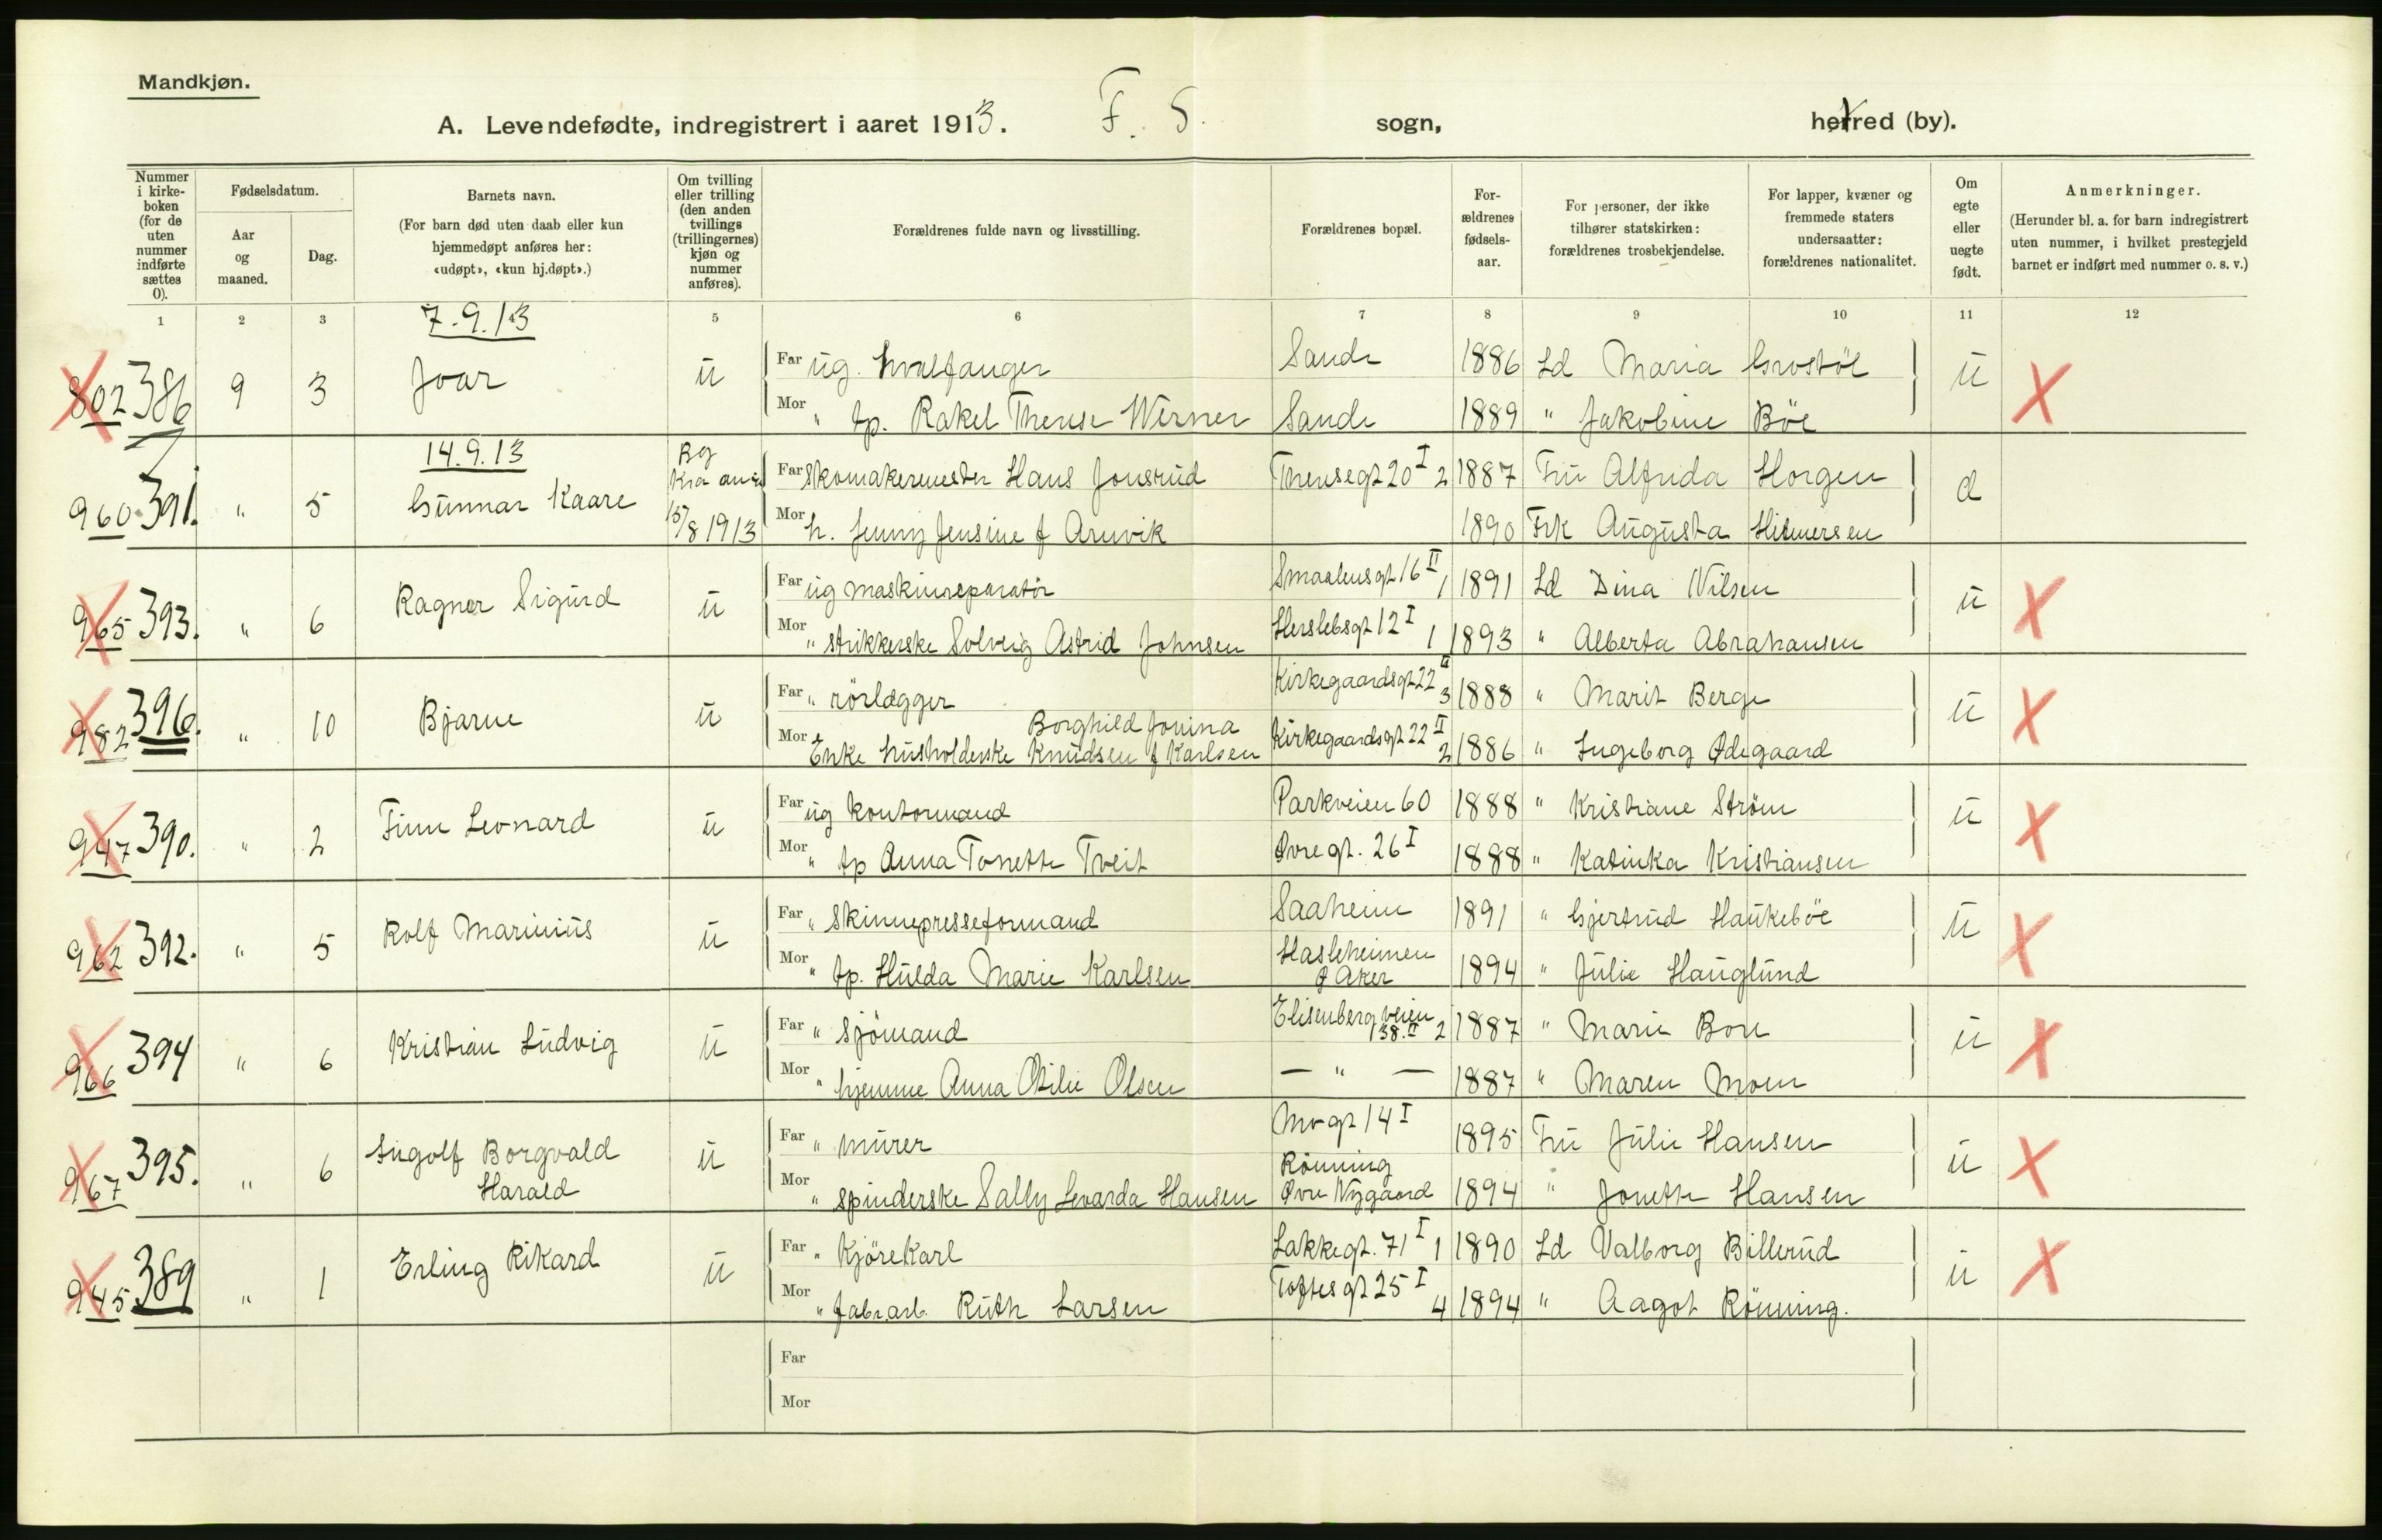 Mandkjøn.
A. Levendefødte, indregistrert i aaret 1913. F. S. sogn, herred (by).
Nummer i kirkeboken (for de uten nummer indførte sættes 0).
Fødselsdatum.
Aar og maaned.
Dag.
Barnets navn.
(For barn død uten daab eller kun hjemmedøpt anføres her: «udøpt», «kun hj.døpt».)
Om tvilling eller trilling (den anden tvillings (trillingernes) kjøn og nummer anføres).
Forældrenes fulde navn og livsstilling.
Forældrenes bopæl.
Forældrenes fødselsaar.
For personer, der ikke tilhører statskirken: forældrenes trosbekjendelse.
For lapper, kvæner og fremmede staters undersaatter: forældrenes nationalitet.
Om egte eller uegte født.
Anmerkninger.
(Herunder bl. a. for barn indregistrert uten nummer, i hvilket prestegjeld barnet er indført med nummer o. s. v.)
1 2 3 5 6 7 8 9 10 11 12
7.9.13
802 386 9 3 Joar u Far ug. hvalfanger Sande 1886 Ld Maria Grostøl u X
Mor " tp. Rakel Therese Werner Sande 1889 " Jakobine Böe
14.9.13
960 391. " 5 Gunnar Kaare Bg Kra 15/8 1913 Far Skomakermester Hans Jonsrud Theresegt 20 I 2 1887 Fru Alfrida Horgen d
Mor h. Jenny Jensine f Arnvik 1890 Frk Augusta Hilmersen
965 393. " 6 Ragnar Sigurd u Far ug maskinreparatør Smaalensgt 16 II 1 1891 Ld Dina Nilsen u X
Mor " strikkerske Solveig Astrid Johnsen Herslebsgt 12 I 1 1893 " Alberta Abrahamsen
982 396. " 10 Bjarne u Far " rörlægger Kirkegaardsgt 22 II 3 1888 " Marit Berge u X
Mor Enke husholderske Borghild Jonina Knudsen f Karlsen Kirkegaardsgt 22 II 2 1886 " Ingeborg Ødegaard
947 390. " 2 Finn Leonard u Far ug kontormand Parkveien 60 1888 " Kristiane Ström u X
Mor " tp Anna Tonette Tveit Øvregt. 26 I 1888 " Katinka Kristiansen
962 392. " 5 Rolf Marinius u Far " Skinnepresseformand Saaheim 1891 " Gjertrud Haukeböe u X
Mor " tp. Hulda Marie Karlsen Hasleheimen Aker 1894 " Julie Hauglund
966 394 " 6 Kristian Ludvig u Far " Sjömand Elisenbergveien 38. II 2 1887 " Marie Bon u X
Mor " hjemme Anna Otilie Olsen — " — 1887 " Maren Moen
967 395. " 6 Ingolf Borgvald Harald u Far " murer Mogt 14 I 1895 Fru Julie Hansen u X
Mor " spinderske Sally Levarda Hansen Rönning Øvre Nygaard 1894 " Jonette Hansen
945 389 " 1 Erling Rikard u Far " Kjörekarl Lakkegt. 71 I 1 1890 Ld Valborg Billerud u X
Mor " fabr.arb. Ruth Larsen Toftesgt 25 I 4 1894 " Aagot Rönning.
Far
Mor